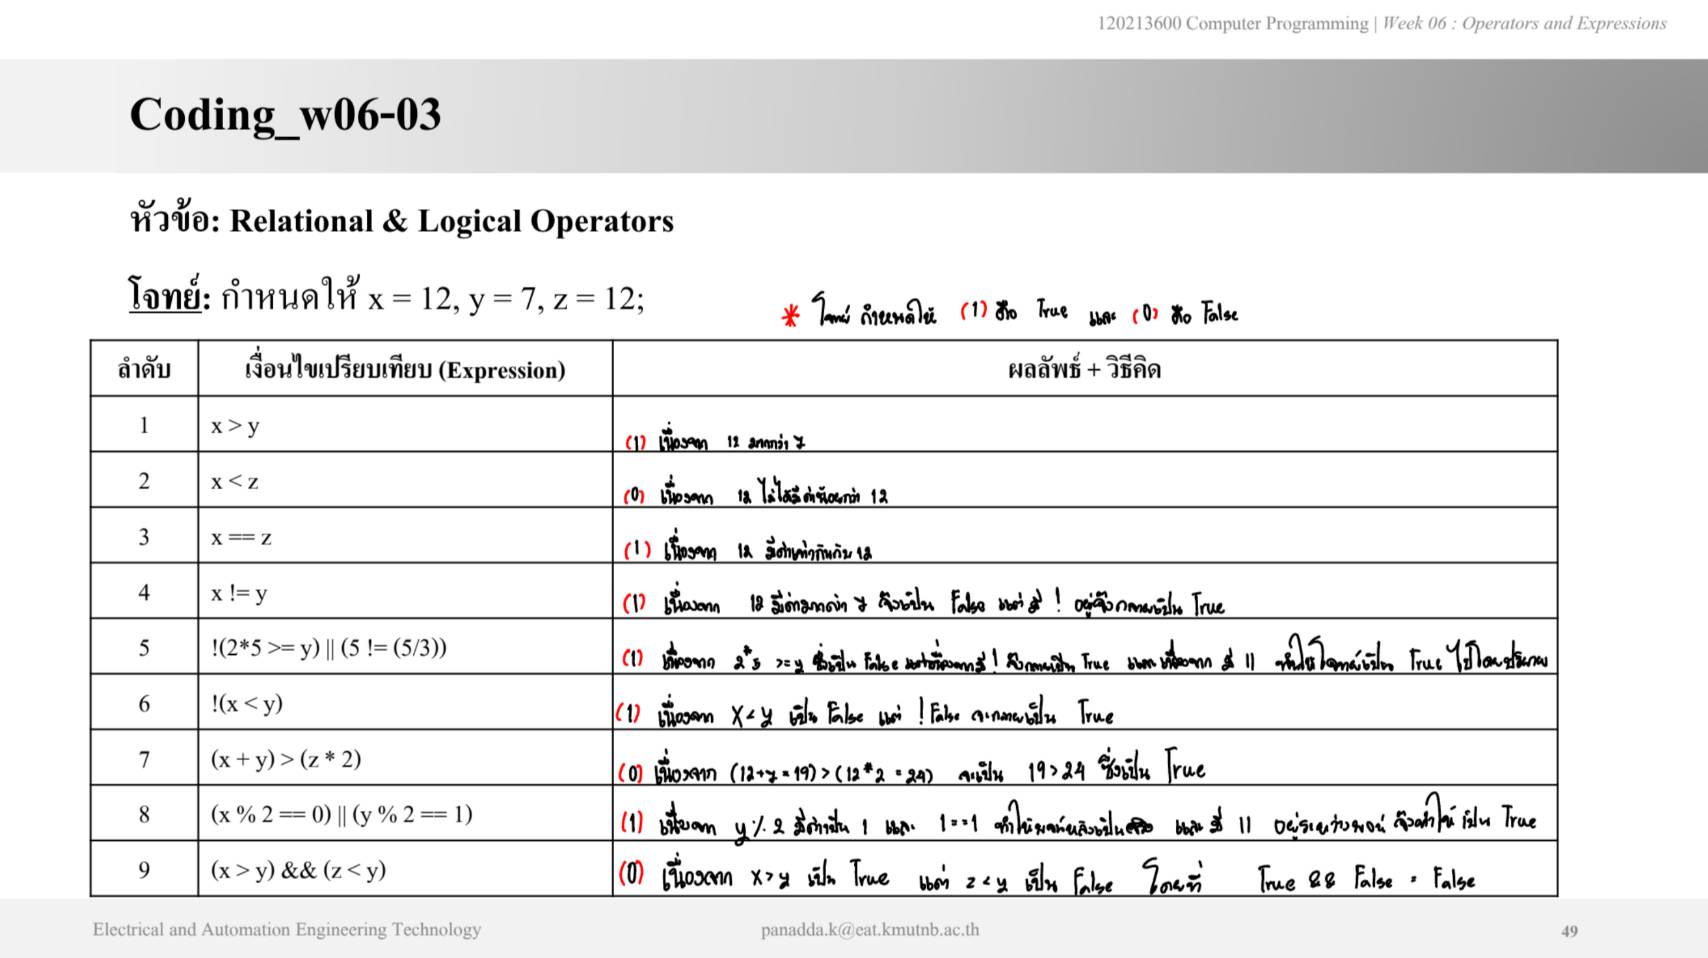 120213600 Computer Programming | Week 06 : Operators and Expressions
Coding_w06-03
หัวข้อ: Relational & Logical Operators
โจทย์: กำหนดให้ x = 12, y = 7, z = 12;
* โจทย์ กำหนดให้ (1) คือ True และ (0) คือ False
ลำดับ เงื่อนไขเปรียบเทียบ (Expression) ผลลัพธ์ + วิธีคิด
1 x > y (1) เนื่องจาก 12 มากกว่า 7
2 x < z (0) เนื่องจาก 12 ไม่ได้มีค่าน้อยกว่า 12
3 x == z (1) เนื่องจาก 12 มีค่าเท่ากันกับ 12
4 x != y (1) เนื่องจาก 12 มีค่ามากกว่า 7 จึงเป็น False แต่ มี ! อยู่จึงกลายเป็น True
5 !(2*5 >= y) || (5 != (5/3)) (1) เนื่องจาก 2*5 >= y ซึ่งเป็น False แต่เนื่องจากมี ! จึงกลายเป็น True และเนื่องจาก มี || ทำให้โจทย์เป็น True ไปโดยปริยาย
6 !(x < y) (1) เนื่องจาก x < y เป็น False แต่ ! False จะกลายเป็น True
7 (x + y) > (z * 2) (0) เนื่องจาก (12+7 = 19) > (12*2 = 24) จะเป็น 19 > 24 ซึ่งเป็น True
8 (x % 2 == 0) || (y % 2 == 1) (1) เนื่องจาก y % 2 มีค่าเป็น 1 และ 1 == 1 ทำให้ และ มี || อยู่ระหว่าง จึงทำให้ เป็น True
9 (x > y) && (z < y) (0) เนื่องจาก x > y เป็น True แต่ z < y เป็น False โดยที่ True && False = False
Electrical and Automation Engineering Technology panadda.k@eat.kmutnb.ac.th 49